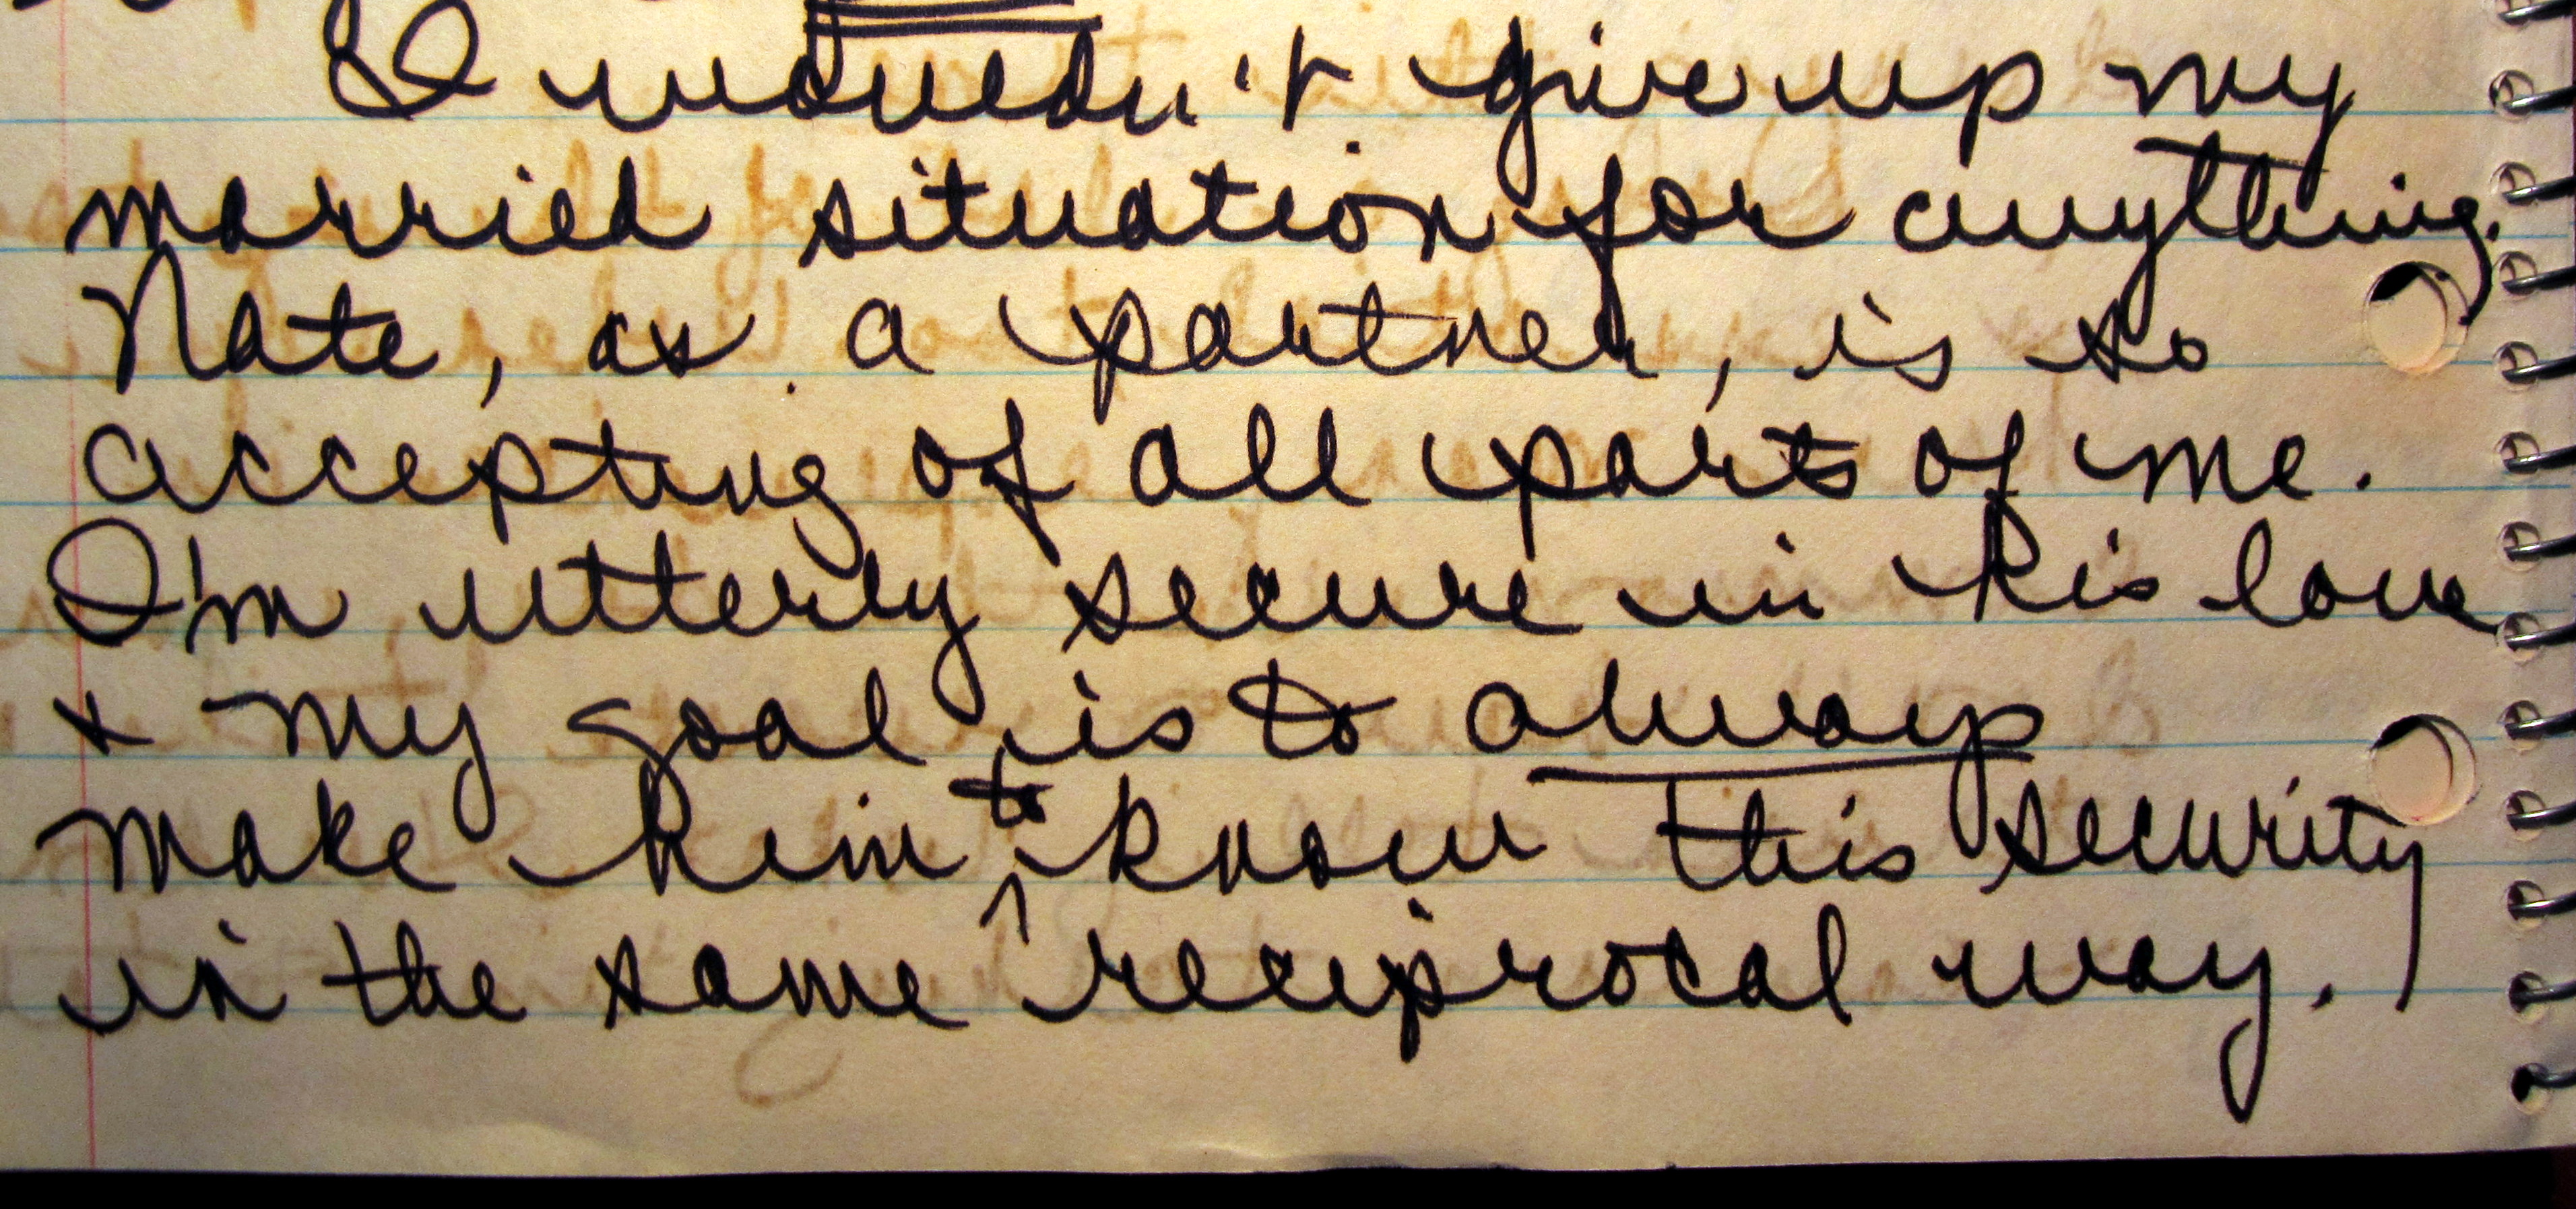 I wouldn't give up my
married situation for anything.
Nate, as a partner, is so
accepting of all parts of me.
I'm utterly secure in his love
+ my goal is to always
make him to know this security
in the same reciprocal way.